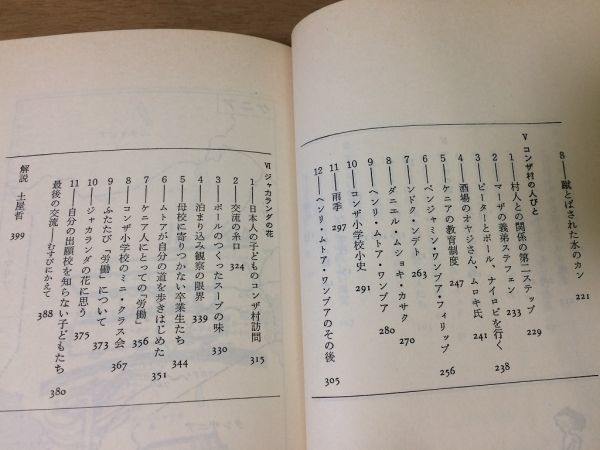 8――蹴とばされた水のカン 221
V コンザ村の人びと
1――村人との関係の第二ステップ 229
2――マーザの義弟ステフェン 233
3――ピーターとポール、ナイロビを行く 238
4――酒場のオヤジさん、ムロキ氏 241
5――ケニアの教育制度 247
6――ベンジャミン・ワンブア・フィリップ 256
7――ンドク・ンデト 263
8――ダニエル・ムショキ・カサク 270
9――ヘンリ・ムトア・ワンブア 280
10――コンザ小学校小史 291
11――雨季 297
12――ヘンリ・ムトア・ワンブアのその後 305
VI ジャカランダの花
1――日本人の子どものコンザ村訪問 315
2――交流の糸口 324
3――ポールのつくったスープの味 330
4――泊まり込み観察の限界 339
5――母校に寄りつかない卒業生たち 344
6――ムトアが自分の道を歩きはじめた 351
7――ケニア人にとっての「労働」 356
8――コンザ小学校のミニ・クラス会 367
9――ふたたび「労働」について 373
10――ジャカランダの花に思う 375
11――自分の出願校を知らない子どもたち 380
最後の交流――むすびにかえて 388
解説 土屋哲 399
ケニア
タンザニア